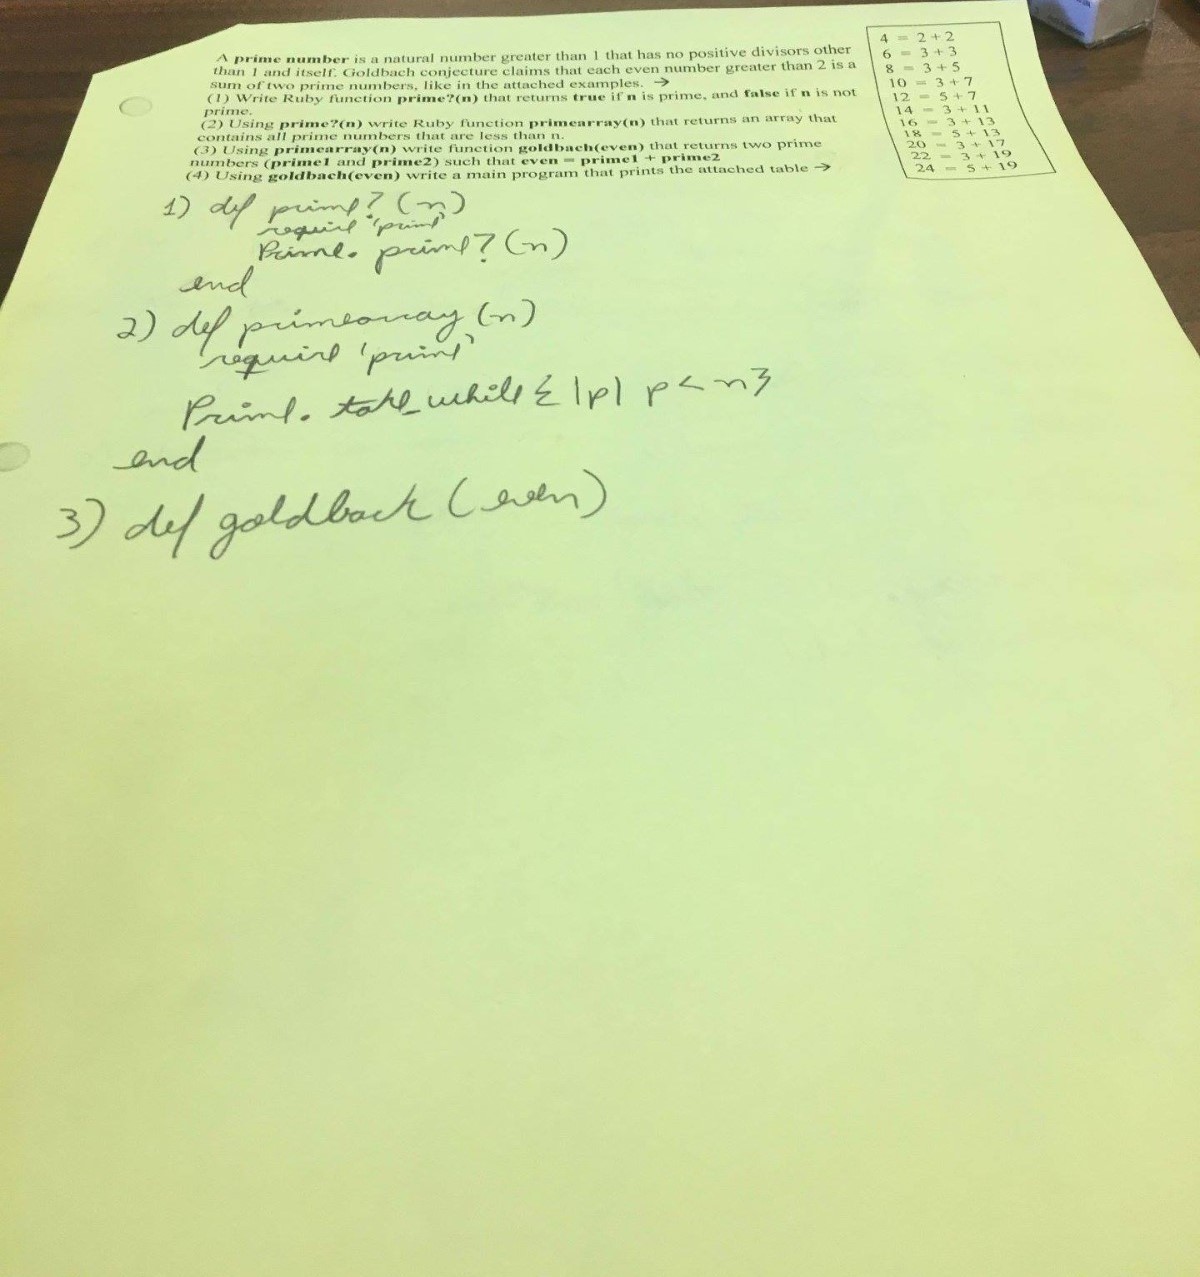 A prime number is a natural number greater than 1 that has no positive divisors other
than 1 and itself. Goldbach conjecture claims that each even number greater than 2 is a
sum of two prime numbers, like in the attached examples. →
(1) Write Ruby function prime?(n) that returns true if n is prime, and false if n is not
prime.
(2) Using prime?(n) write Ruby function primearray(n) that returns an array that
contains all prime numbers that are less than n.
(3) Using primearray(n) write function goldbach(even) that returns two prime
numbers (prime1 and prime2) such that even = prime1 + prime2
(4) Using goldbach(even) write a main program that prints the attached table →
4 = 2 + 2
6 = 3 + 3
8 = 3 + 5
10 = 3 + 7
12 = 5 + 7
14 = 3 + 11
16 = 3 + 13
18 = 5 + 13
20 = 3 + 17
22 = 3 + 19
24 = 5 + 19
1) def prime? (n)
require 'prime'
Prime. prime? (n)
end
2) def primearray (n)
require 'prime'
Prime. take_while { |p| p < n }
end
3) def goldback (even)